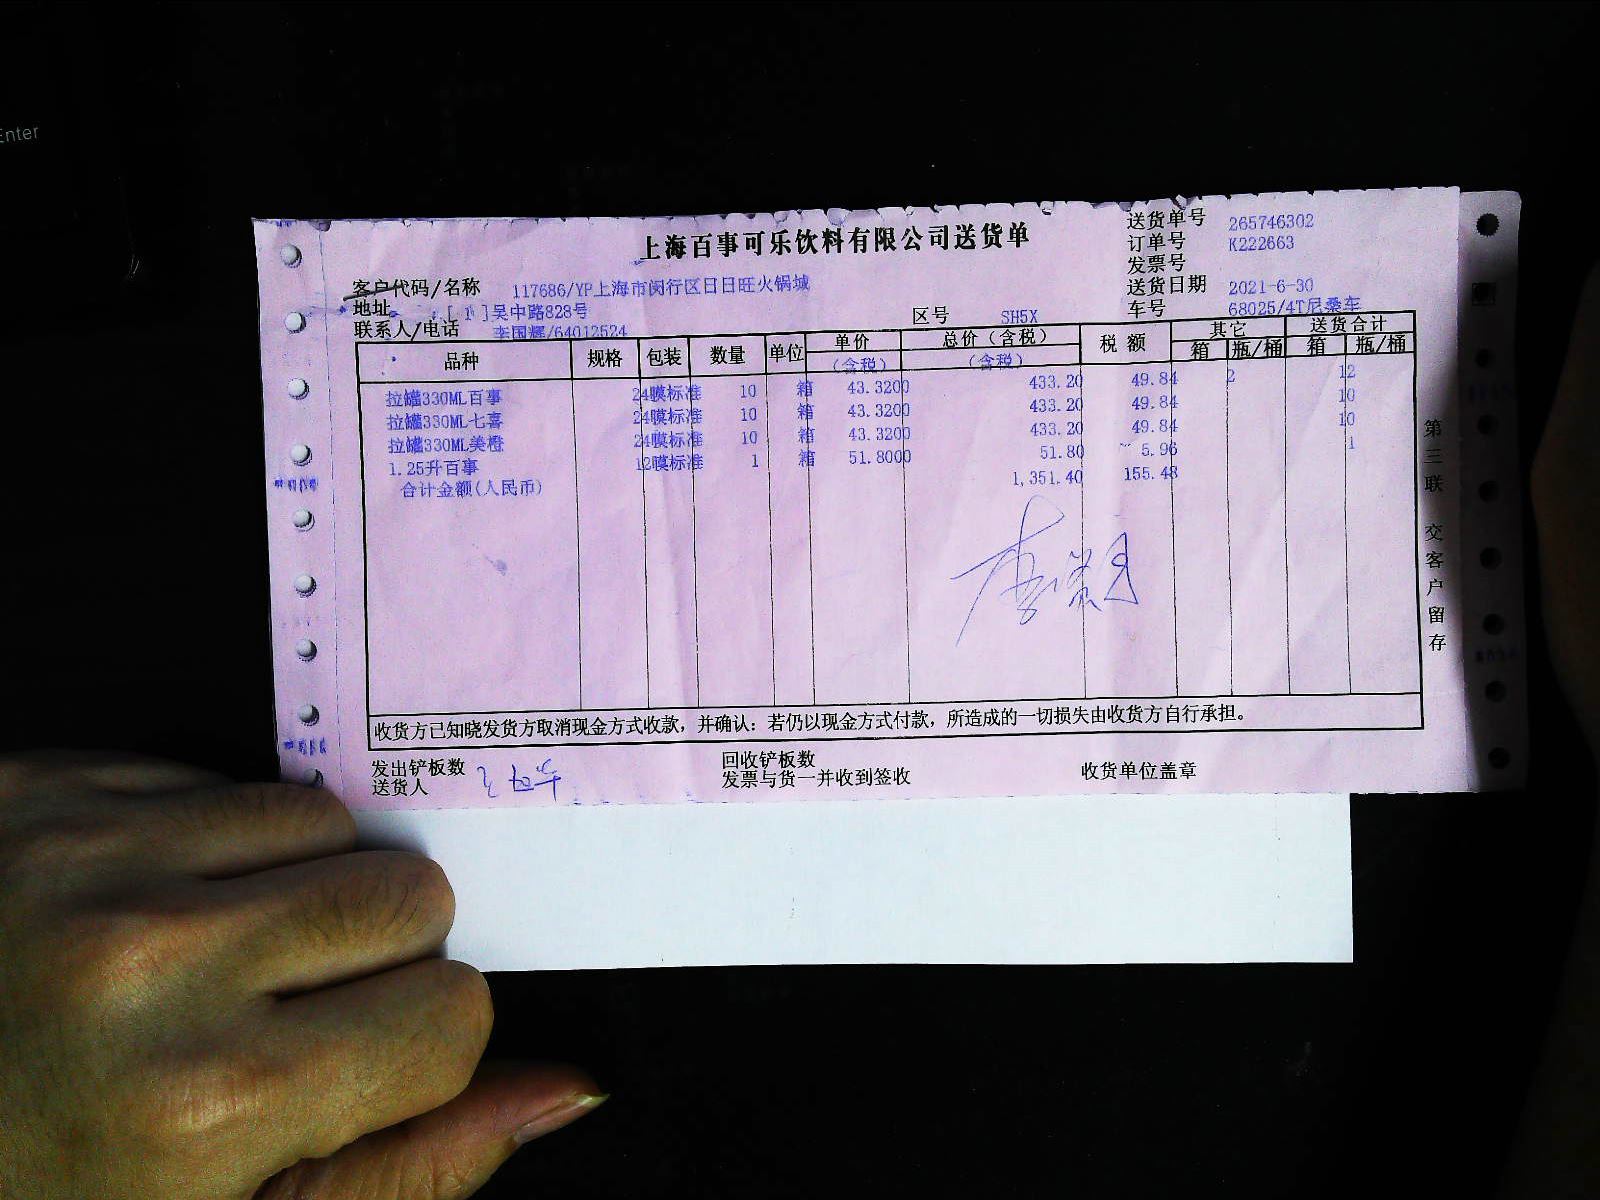 Enter
上海百事可乐饮料有限公司送货单
送货单号 265746302
订单号 K222663
发票号
送货日期 2021-6-30
车号 68025/4T尼桑车
客户代码/名称 117686/YP上海市闵行区日日旺火锅城
地址 [ 1 ]吴中路828号
联系人/电话 李国辉/64012524
区号 SH5X
品种 规格 包装 数量 单位 单价 总价(含税) 税额 其它 送货合计
(含税) (含税) 箱 瓶/桶 箱 瓶/桶
拉罐330ML百事 24膜标准 10 箱 43.3200 433.20 49.84 2 12
拉罐330ML七喜 24膜标准 10 箱 43.3200 433.20 49.84 10
拉罐330ML美橙 24膜标准 10 箱 43.3200 433.20 49.84 10
1.25升百事 12膜标准 1 箱 51.8000 51.80 5.96 1
合计金额(人民币) 1,351.40 155.48
收货方已知晓发货方取消现金方式收款，并确认：若仍以现金方式付款，所造成的一切损失由收货方自行承担。
发出铲板数
送货人
回收铲板数
发票与货一并收到签收
收货单位盖章
第三联 交客户留存